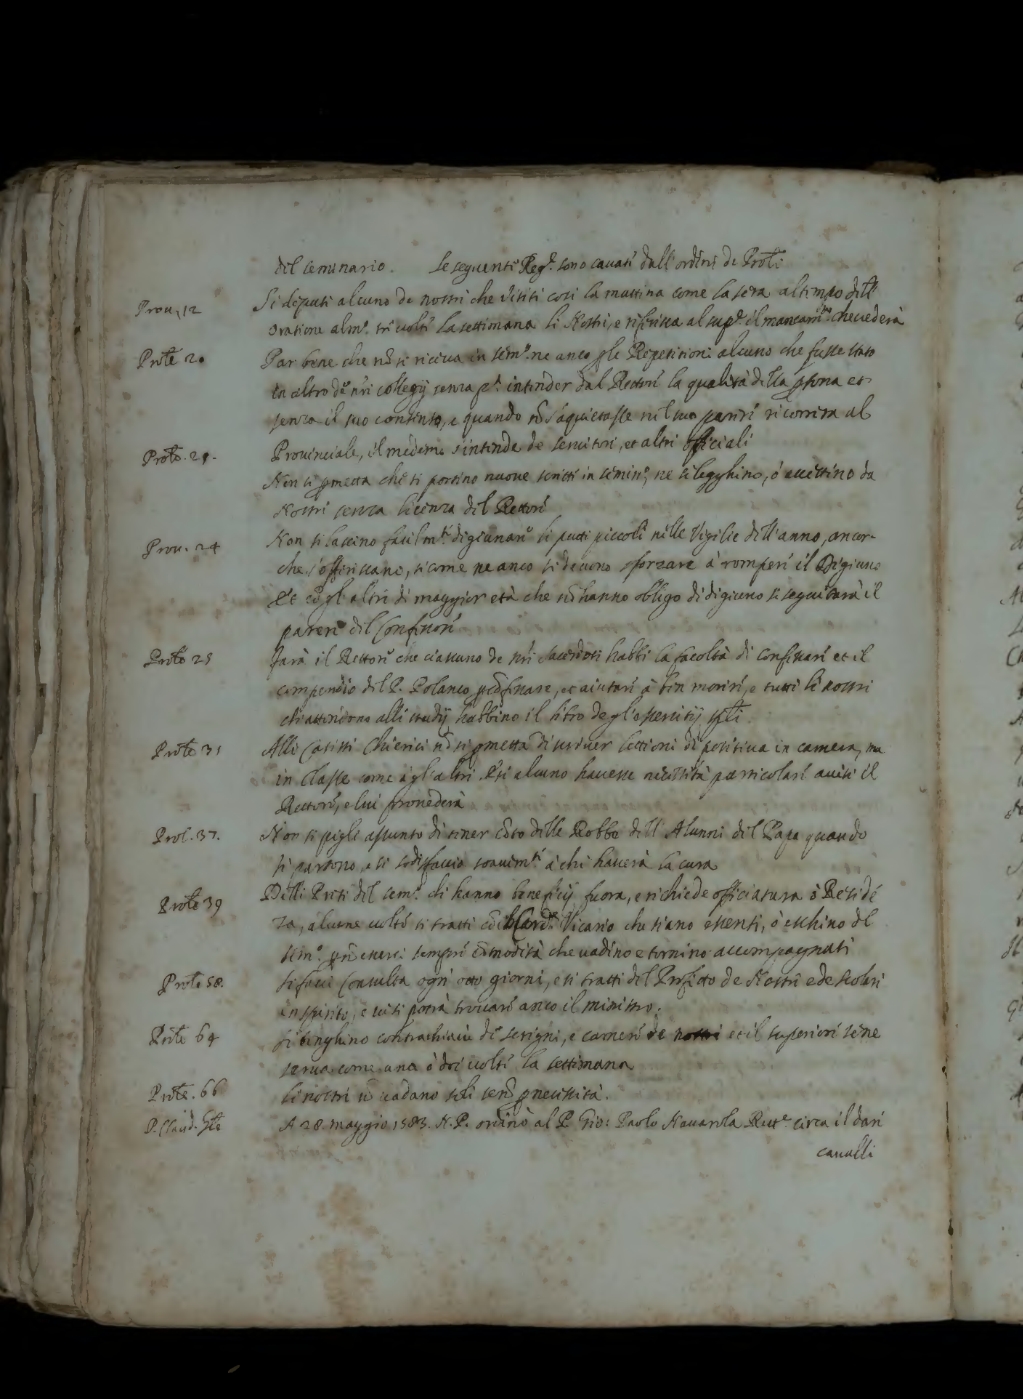 del seminario. Le seguenti Reg.e sono cavati dall'ordini de Pro.li
Prov. 12 Si deputi alcuno de nostri che visiti così la mattina come la sera al tempo dell'
oratione alm.o tre volte la settimana li Nostri, e riferisca al sup.re il mancam.to che vederà
Prole 20 Par bene che nō si riceva in sem.o ne anco p le Repetitioni alcuno che fusse stato
in altro de nri collegij senza p.a intender dal Rettore la qualità della psona et
senza il suo contento, e quando nō s'aquietasse nel suo parere ricorrira al
Provinciale, il medemo s'intende de servitori, et altri officiali
Prole. 21. Non si pmetta che si portino nuove scritte in semin.o, ne si legghino, ò accettino da
Nostri senza licenza del Rettore
Prov. 24 Non si lascino facilm.te digiunare li putti piccoli nelle Vigilie dell'anno, ancor-
che s'offerissano, si come ne anco si devono sforzare à romper il Digiuno
Et cō gl'altri di maggior età che nō hanno obligo di digiuno si seguitarà il
parere del Confessore
Prole 25 Farà il Rettore che ciascuno de nri sacerdoti habbi la facoltà di confessare et il
compendio del P. Polanco p cōfessare, et aiutare à ben morire, e tutti li nostri
che attendono alli studij habbino il libro degl'essercitij spli.
Prole 31 Alli Casisti Chierici nō si pmetta di scriver lettioni di positiva in camera, ma
in Classe come gl'altri. Et si alcuno havesse necessità particolare avisi il
Rettore, e lui provederà
Prol. 37. Non si pigli assunto di tener cōto delle Robbe dell'Alunni del Papa quando
si partono, e si sodisfaccio soavem.te à chi haverà la cura
Prole 39 Delli Preti del sem.o ch'hanno beneficij fuora, e richiede officiatura ò Reside
za, alcune volte si tratti cō il Card.e Vicario che siano essenti, ò eschino del
sem.o p nō esserci sempre cōmodità che vadino e tornino accompagnati
Prole 58. Si facci Consulta ogni otto giorni, e si tratti del Profetto de Nostri e de scolari
in spirito, e vi si potrà trovare anco il ministro.
Prole 64 Si tenghino contrachiavi de scrigni, e camere de nostri et il superiore se ne
serva come una ò doi volte la settimana
Prole. 66 Li nostri nō vadano soli senō p necessità.
P. Claud. Gñle A 28 maggio 1583. N. P. ordinò al P. Gio: Paolo Navarola Rett.e circa il dare
cavalli